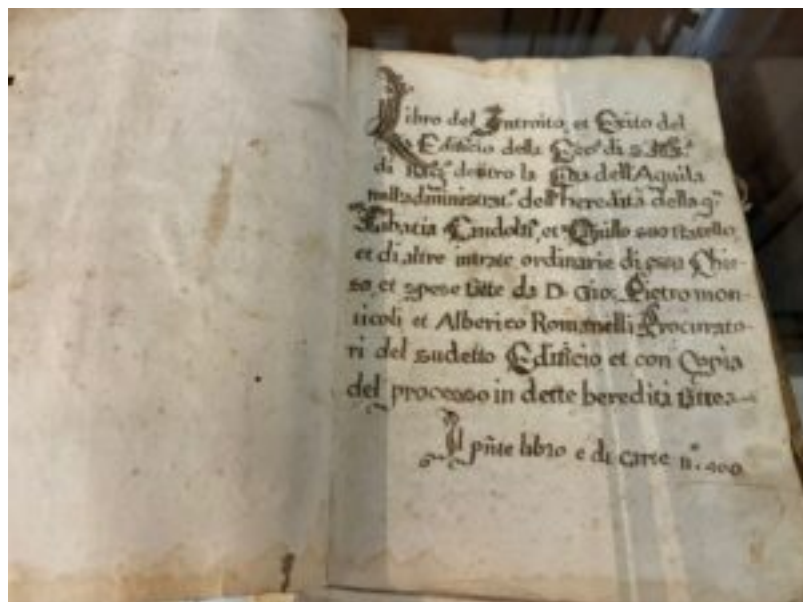 Libro del Introito, et Exito del
Edificio della di
di dentro la dell'Aquila
nell'administrat.e dell'heredità della q.
et suo fratello,
et di altre intrate ordinarie di Chie-
sa, et spese fatte da D. Gio: Pietro mon-
ticoli et Alberico Romanelli Procurato-
ri del sudetto Edificio et con Copia
del processo in dette heredità fatte
Il pñte libro e di carte n.° 400